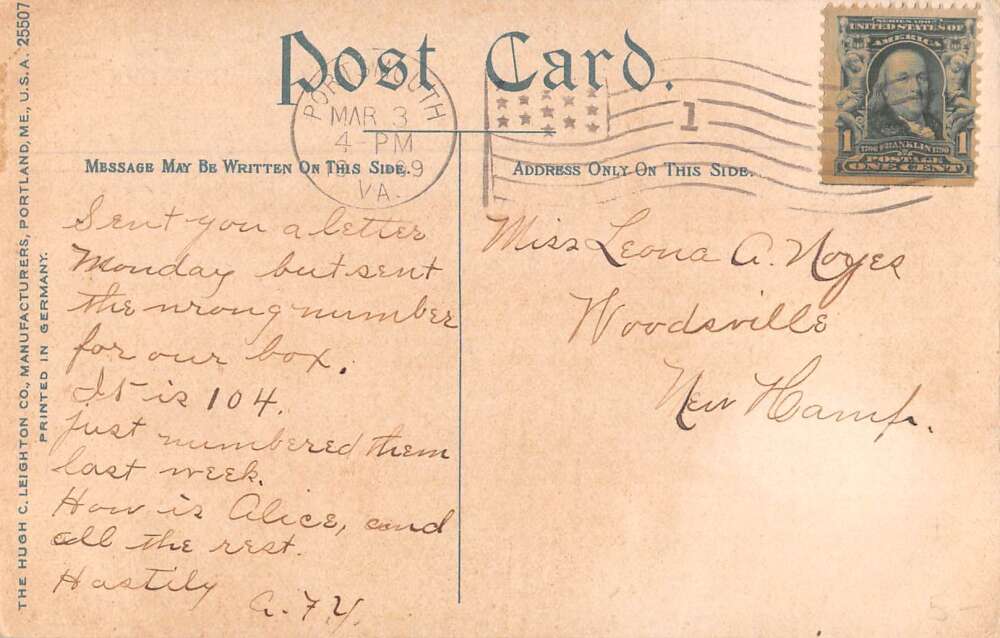 Post Card.
MESSAGE MAY BE WRITTEN ON THIS SIDE.
ADDRESS ONLY ON THIS SIDE.
THE HUGH C. LEIGHTON CO., MANUFACTURERS, PORTLAND, ME., U.S.A. 25507
PRINTED IN GERMANY.
MAR 3
4 - PM
VA.
1
UNITED STATES OF
AMERICA
1 1
FRANKLIN
POSTAGE
ONE CENT
Sent you a letter
Monday but sent
the wrong number
for our box.
It is 104.
Just numbered them
last week.
How is Alice, and
all the rest.
Hastily
Miss Leona A. Noyes
Woodsville
New Hamp.
5-